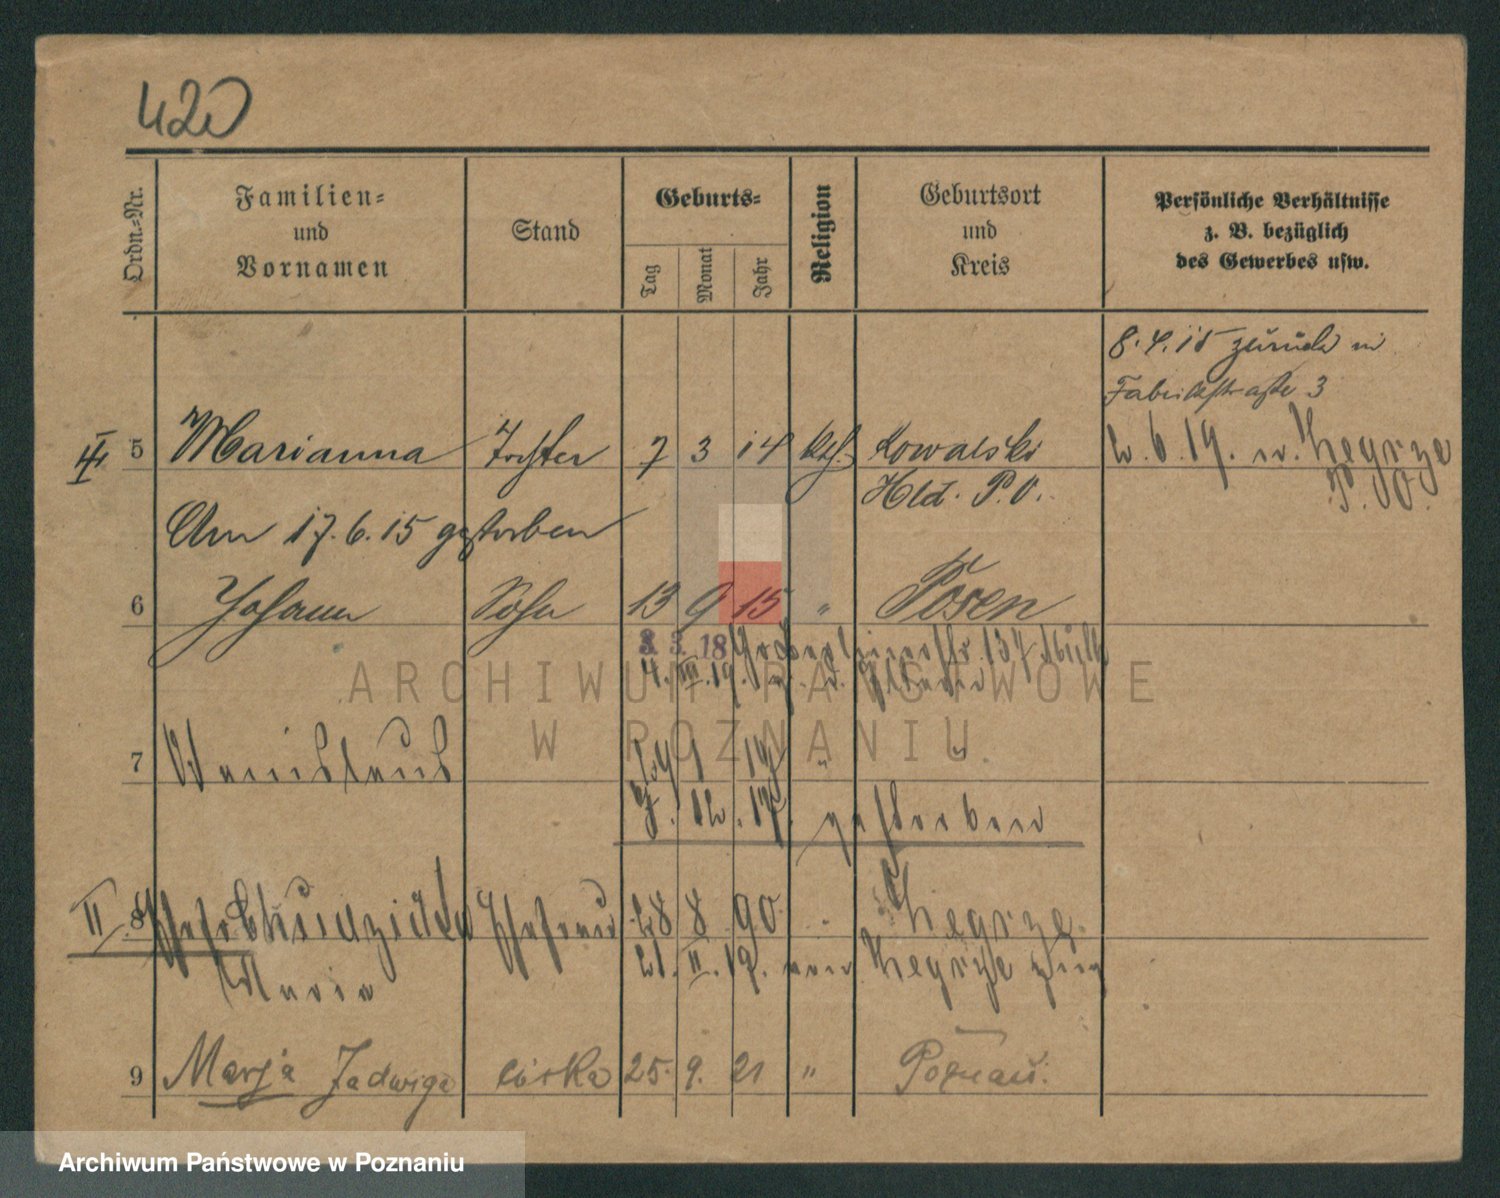 420
Ordn.-Nr.
Familien-
und
Vornamen
Stand
Geburts-
Tag
Monat
Jahr
Religion
Geburtsort
und
Kreis
Persönliche Verhältnisse
z. B. bezüglich
des Gewerbes usw.
8.4.15 zurück in
Fabrikstraße 3
5 Marianna Tochter 7 3 14 kth. Kowalski
2.6.19. n. Zegrze
P. O.
Hld. P.O.
Am 17.6.15 gestorben
6 Johann Sohn 13 9 15 " Posen
3. 3. 18 134
4. III. 19.
ARCHIWUM PAŃSTWOWE
W POZNANIU
7 Stanislaus 1 17 "
7. 12. 17. gestorben
II 8 Ehefrau 28 8 90 Zegrze
21. II. 19. von Zegrze zug
Maria
9 Marja Jadwiga córka 25. 9. 21 " Poznań.
Archiwum Państwowe w Poznaniu